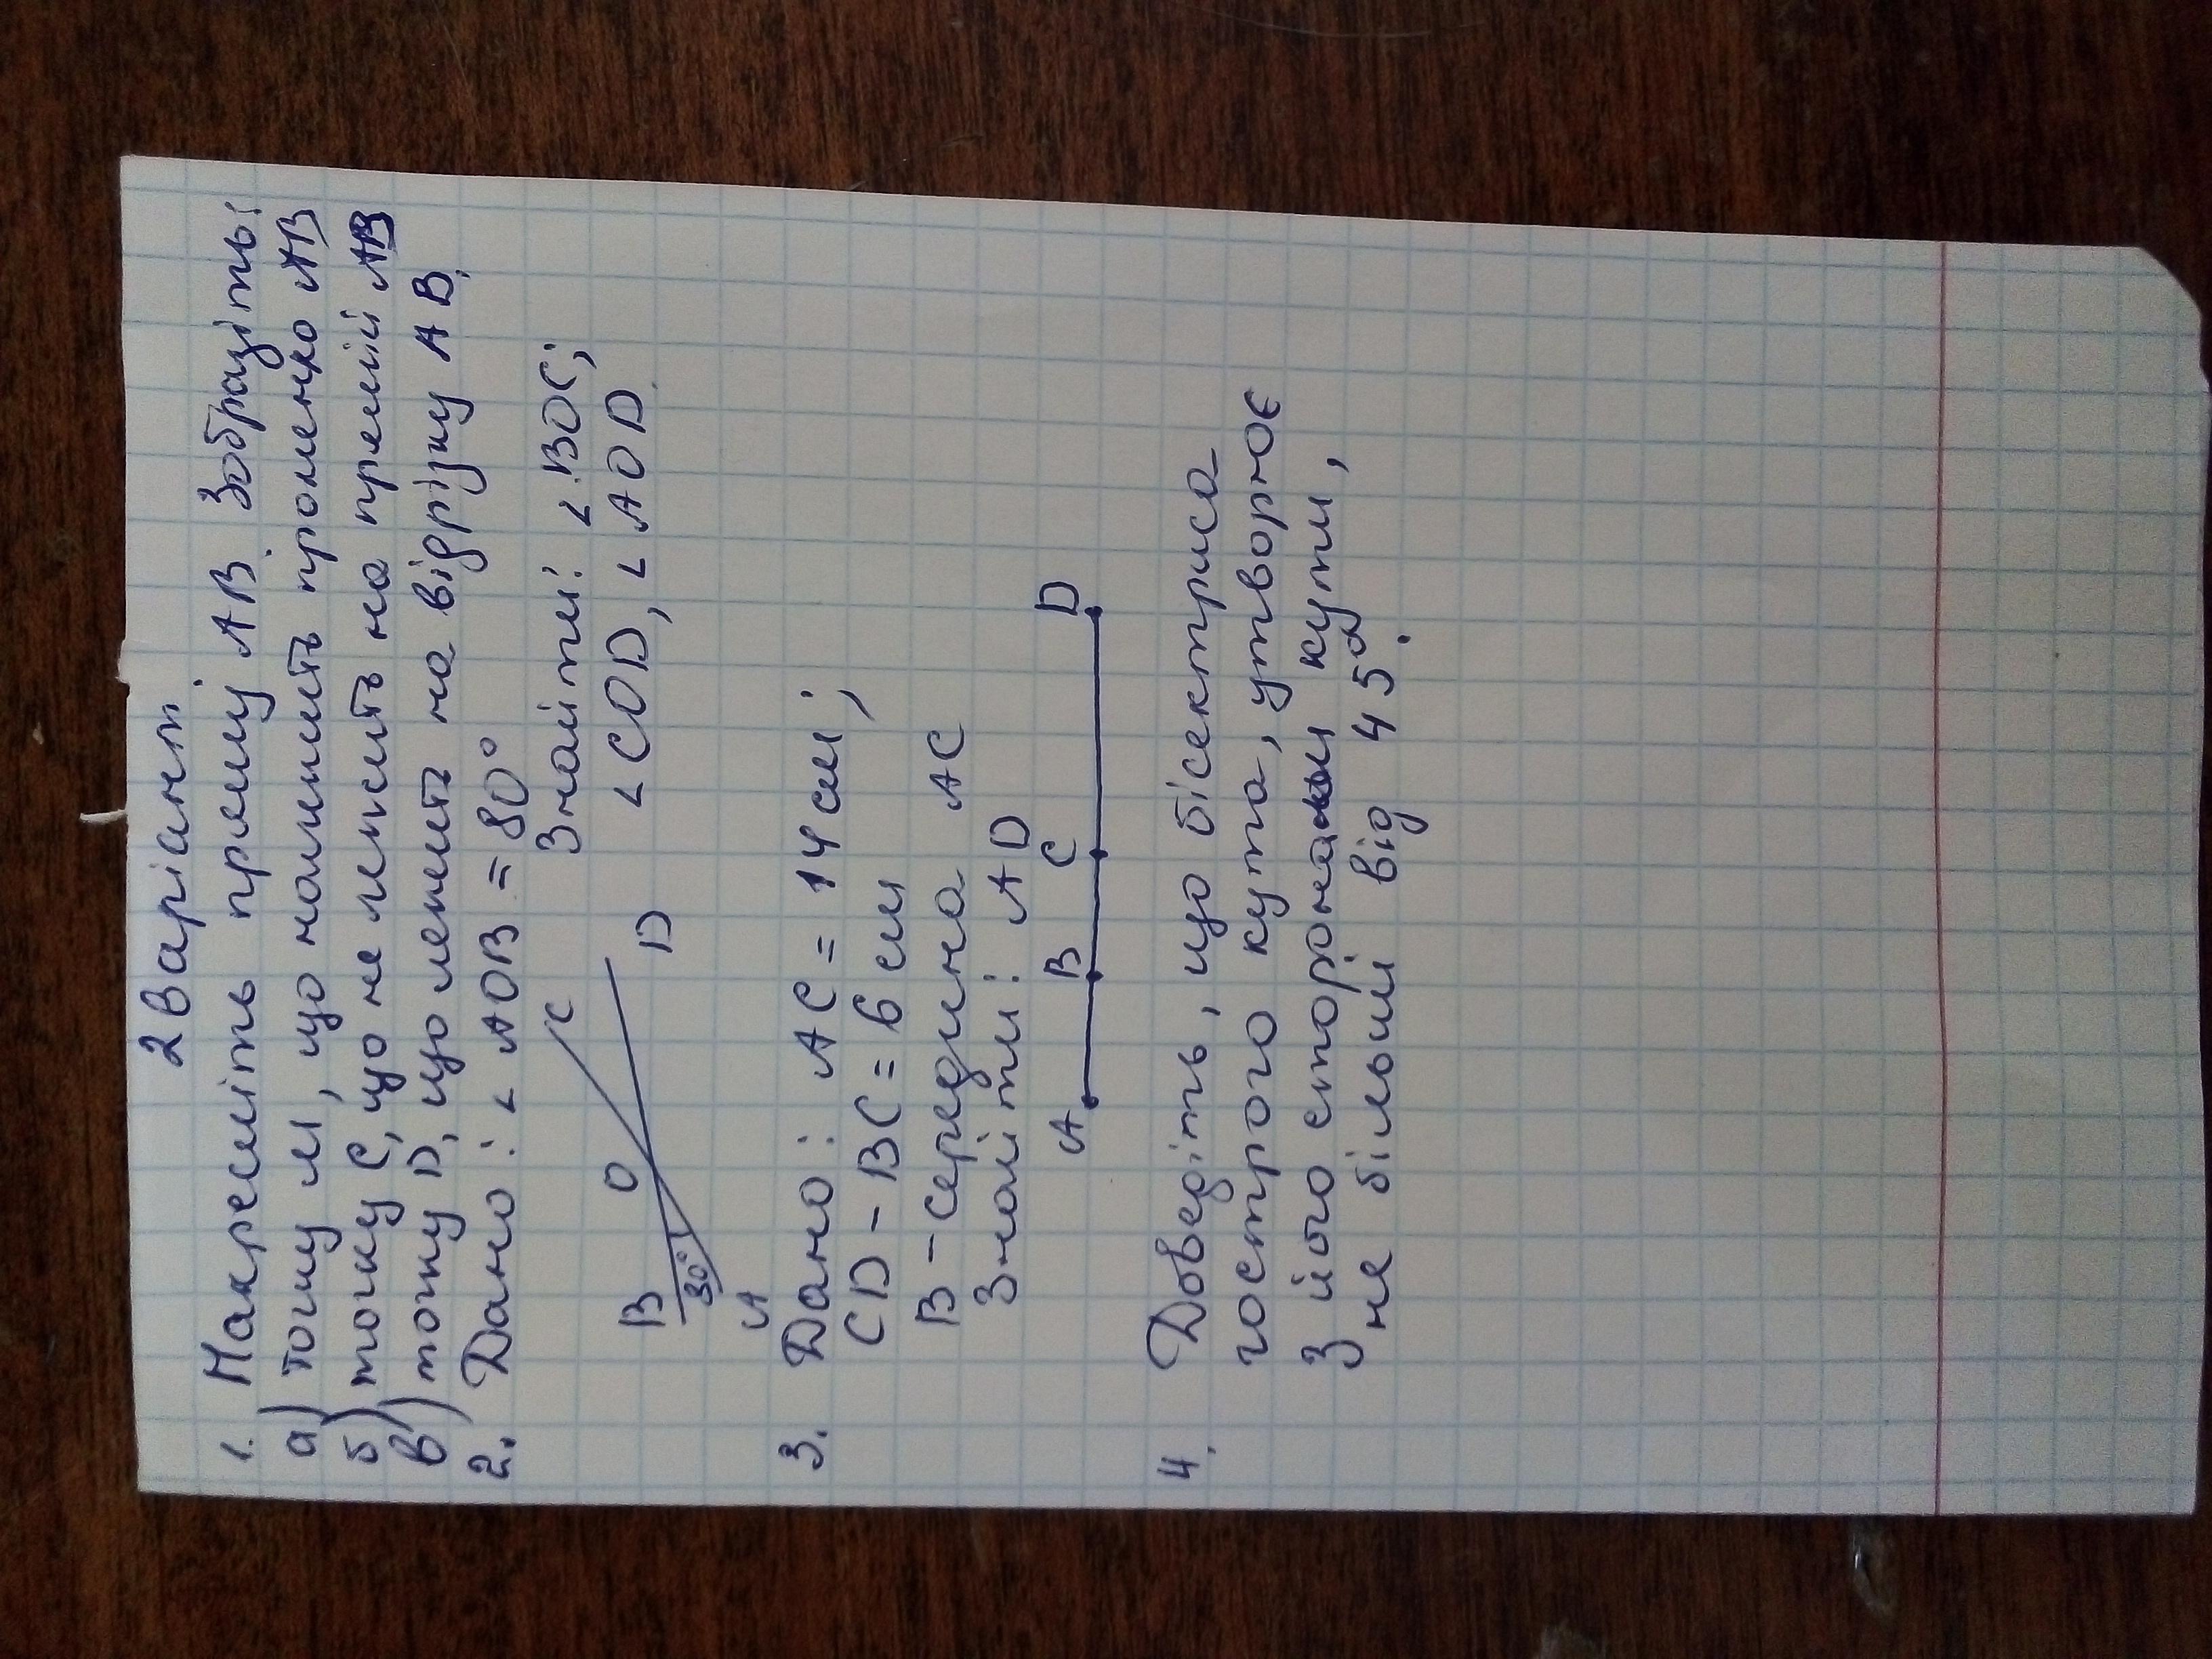 2 Варіант
1. Накресліть пряму АВ. Зобразіть:
а) точку М, що належить променю АВ
б) точку С, що не лежить на прямій АВ
в) точку D, що лежить на відрізку АВ.
2. Дано: ∠ АОВ = 80°
Знайти: ∠ ВОС;
∠ СОD, ∠ АОD.
В О С
30°
А D
3. Дано: АС = 14 см;
СD - ВС = 6 см
В - середина АС
Знайти: АD
А В С D
4. Доведіть, що бісектриса
гострого кута, утворює
З його сторонами кути,
не більші від 45°.